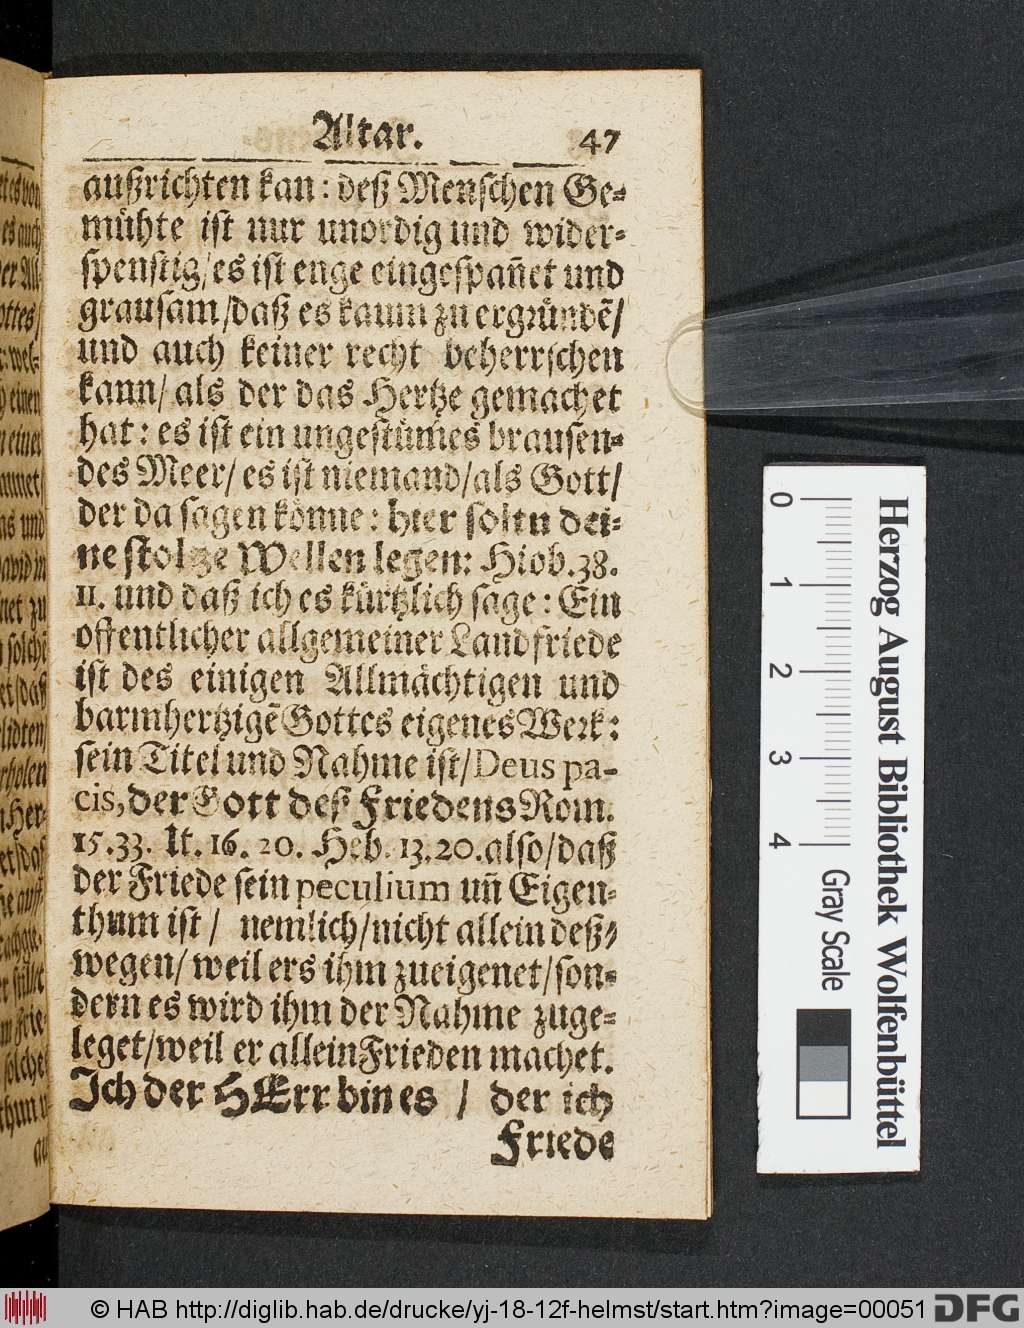 Altar. 47
außrichten kan: deß Menschen Ge-
mühte ist nur unordig und wider-
spenstig/es ist enge eingespañet und
grausam/daß es kaum zu ergründẽ/
und auch keiner recht beherrschen
kann/ als der das Hertze gemachet
hat: es ist ein ungestümes brausen-
des Meer/ es ist niemand/als Gott/
der da sagen könne: hier soltu dei-
ne stoltze Wellen legen: Hiob. 38.
11. und daß ich es kürtzlich sage: Ein
offentlicher allgemeiner Landfriede
ist des einigen Allmächtigen und
barmhertzigẽ Gottes eigenes Werk:
sein Titel und Nahme ist/Deus pa-
cis, der Gott deß Friedens Rom.
15.33. It. 16. 20. Heb. 13.20. also/daß
der Friede sein peculium uñ Eigen-
thum ist / nemlich/nicht allein deß-
wegen/ weil ers ihm zueigenet/son-
dern es wird ihm der Nahme zuge-
leget/weil er allein Frieden machet.
Ich der HErr bin es / der ich
Friede
0 1 2 3 4
Gray Scale
Herzog August Bibliothek Wolfenbüttel
© HAB http://diglib.hab.de/drucke/yj-18-12f-helmst/start.htm?image=00051
DFG